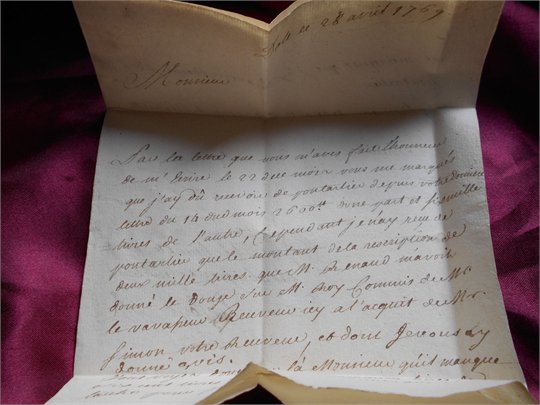 ce 28 avril 1769
Monsieur
Par la lettre que vous m'avés fait l'honneur
de m'Ecrire le 22 du mois vous me marqués
que j'ay dû recevoir de pontarlier depuis votre derniere
lettre du 14 dud mois 2600 tt d'une part et six mille
livres de l'autre, Cependant je n'ay reçu de
pontarlier que le montant de la rescription de
deux mille livres que M. Renaud m'avoit
donné le Sur M. Roy Commis de Mr
le vavasseur Receveur icy a l'acquit de Mr
Simon votre Receveur, et dont Je vous ay
donné avis.
là Monsieur qu'il manque